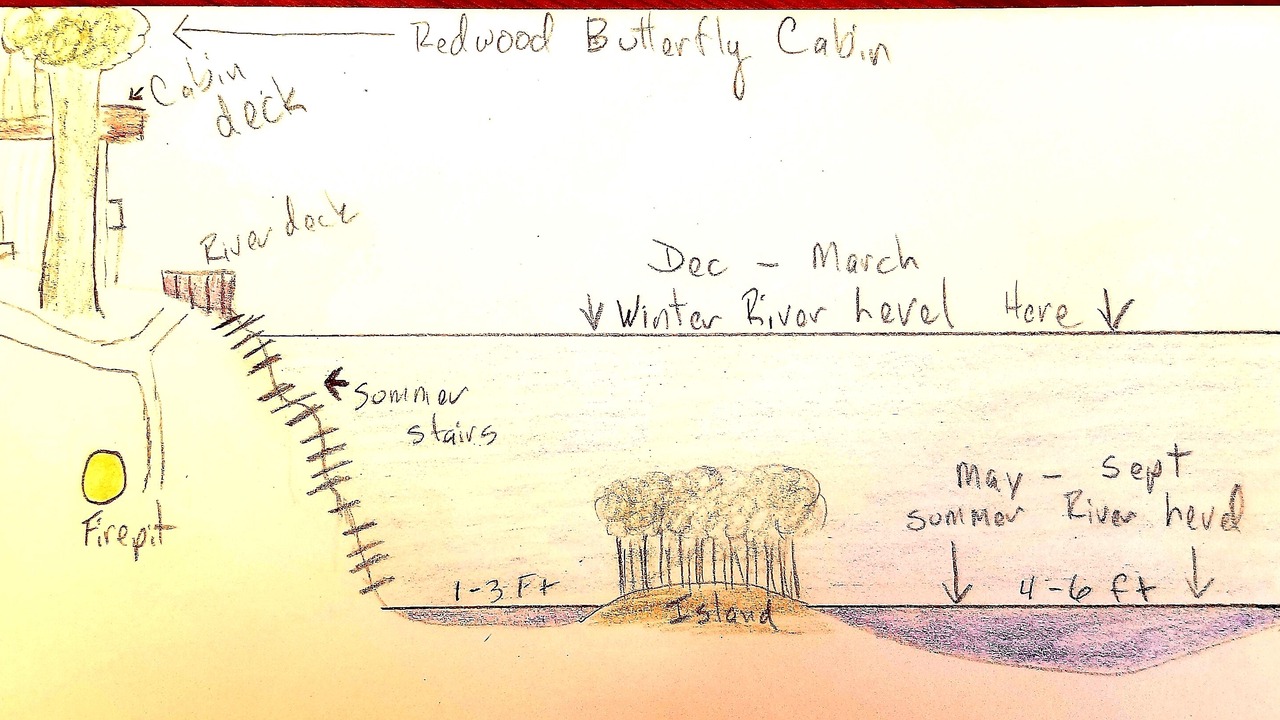 Redwood Butterfly Cabin
Cabin
deck
River deck
Dec - March
Winter River Level Here
Summer
stairs
May - Sept
Summer River Level
Firepit
1-3 Ft
4-6 ft
Island